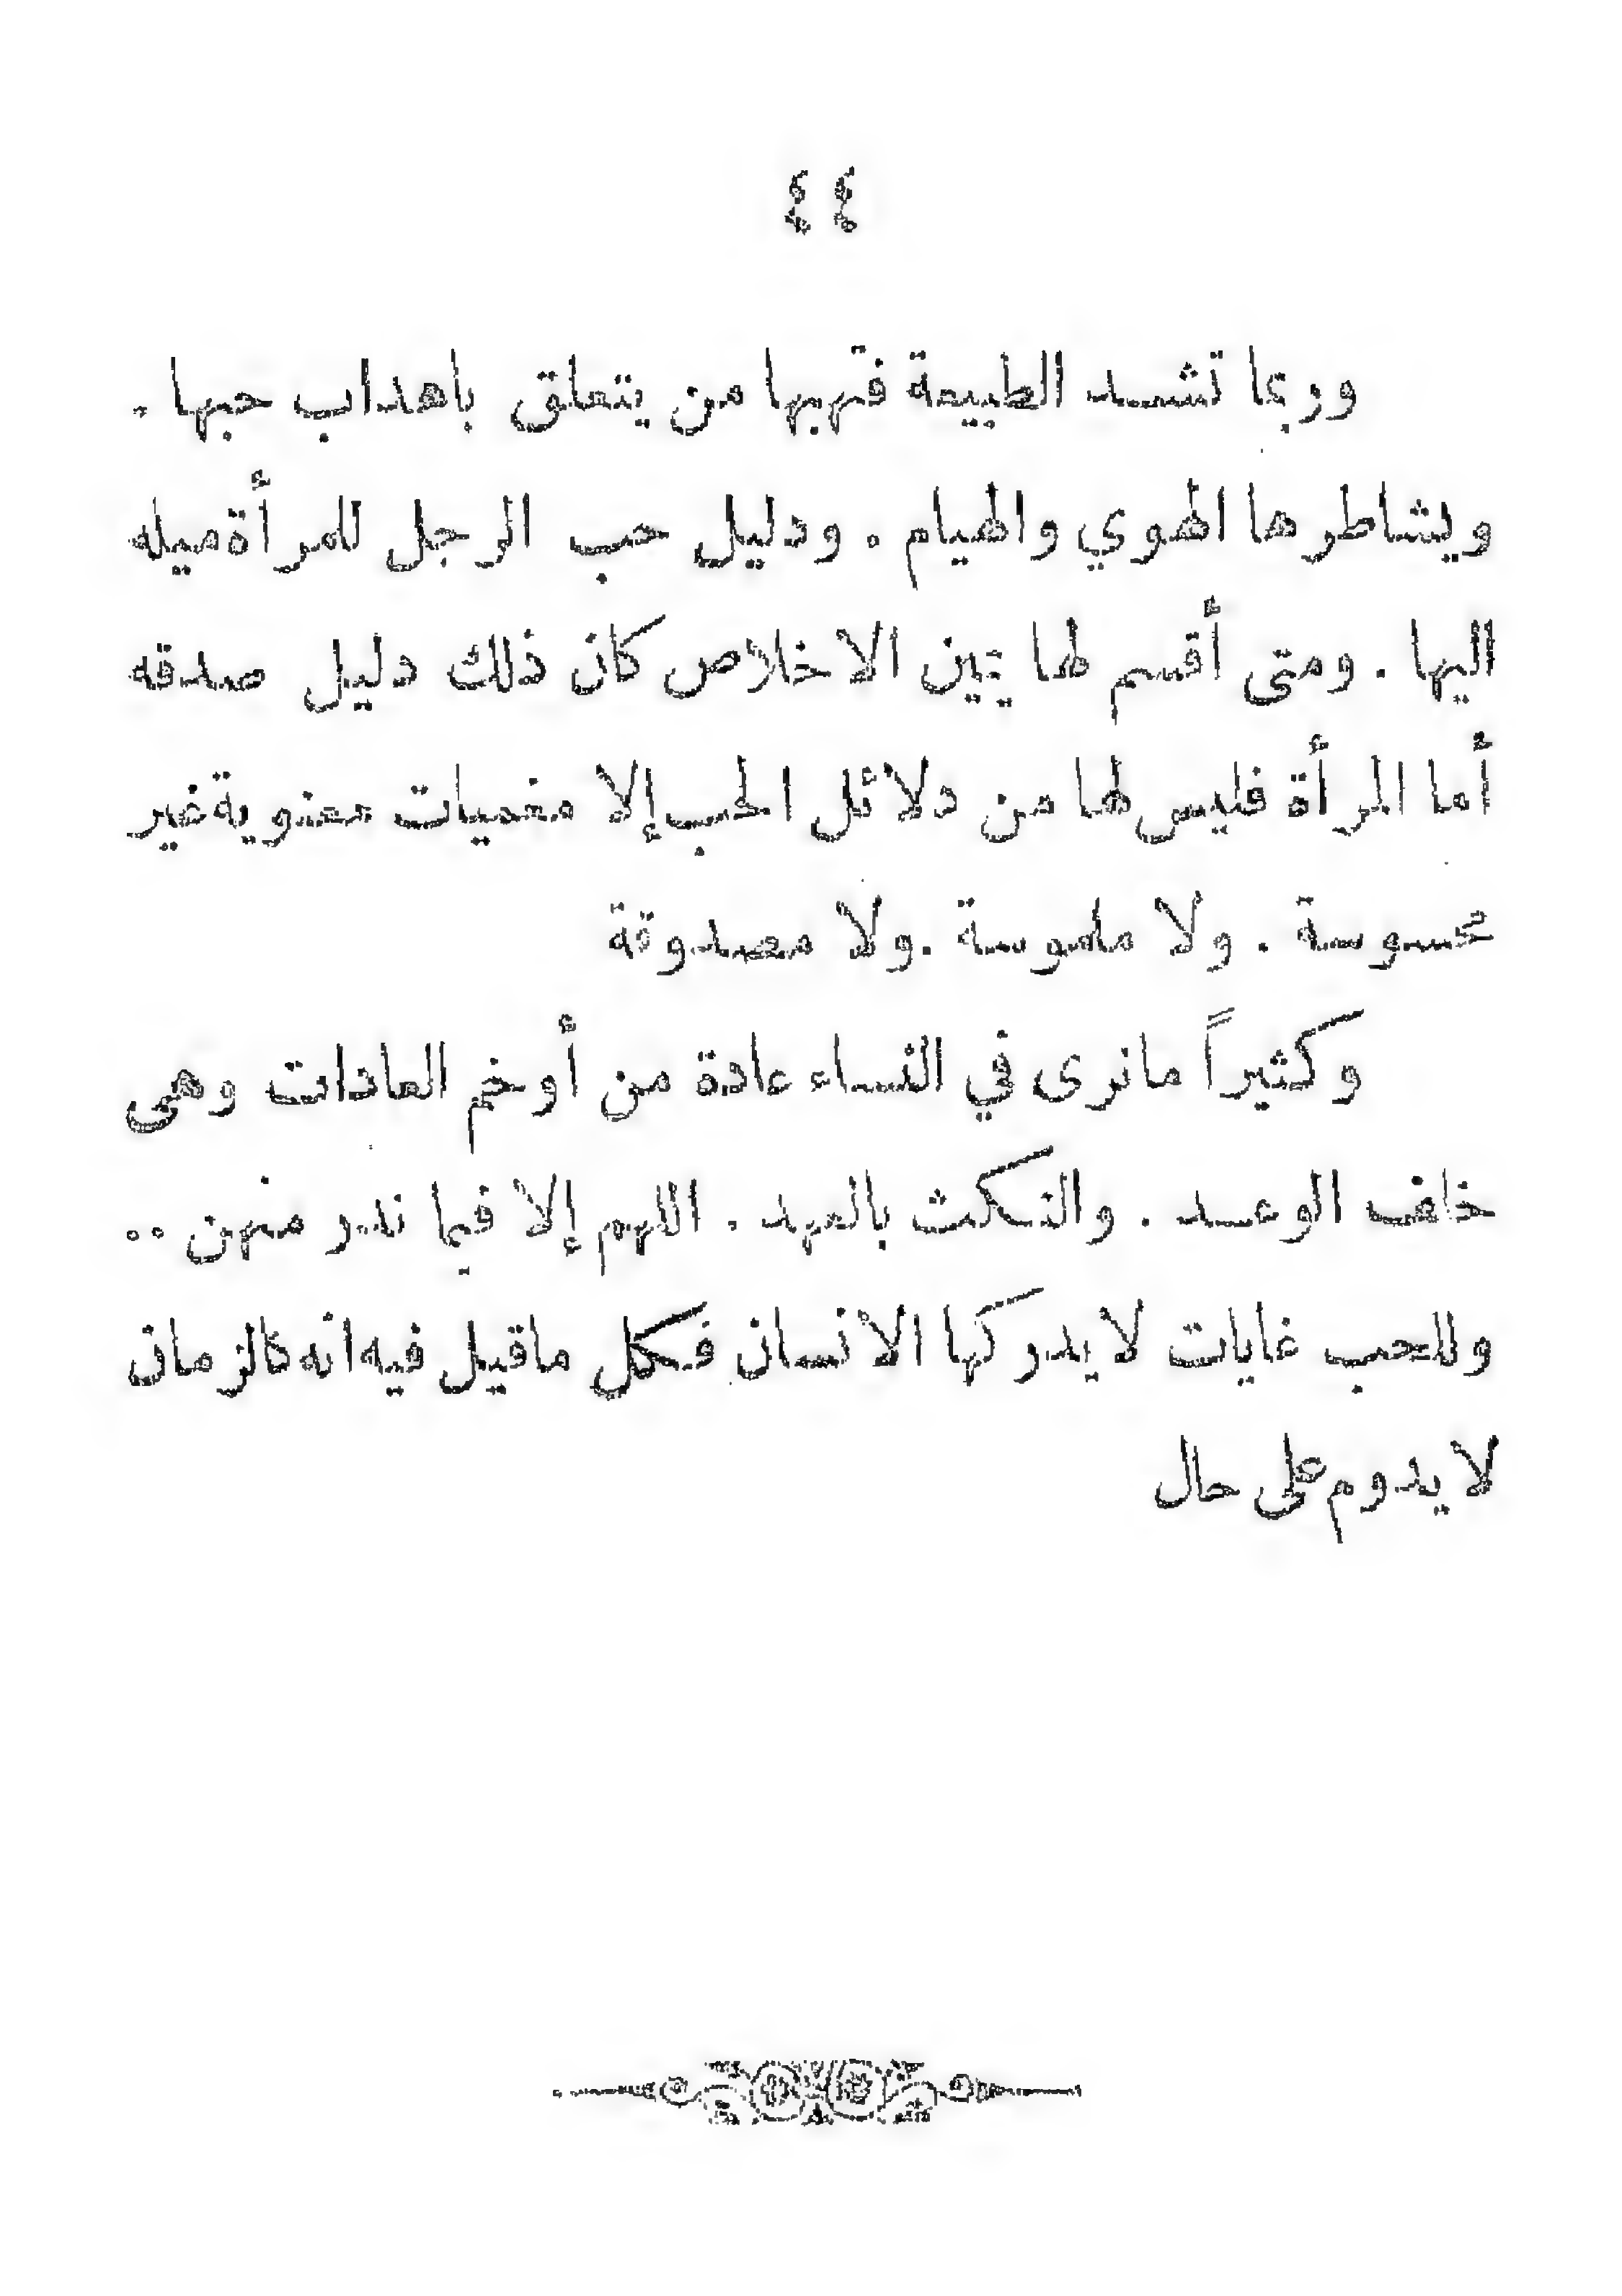 ٤٤
وربما تشد الطبيعة فتهبها من يتعلق باهداب حبها .
ويشاطرها الهوي والهيام . ودليل حب الرجل للمرأة ميله
اليها . ومتى أقسم لها يمين الاخلاص كان ذلك دليل صدقه
أما المرأة فليس لها من دلائل الحب إلا مغميات معنوية غير
محسوسة . ولا ملموسة . ولا مصدوقة
وكثيراً ما نرى في النساء عادة من أوخم العادات وهى
خلف الوعد . والنكث بالعهد . اللهم إلا فيما ندر منهن ..
وللحب غايات لا يدركها الانسان فكل ماقيل فيه انه كالزمان
لا يدوم على حال